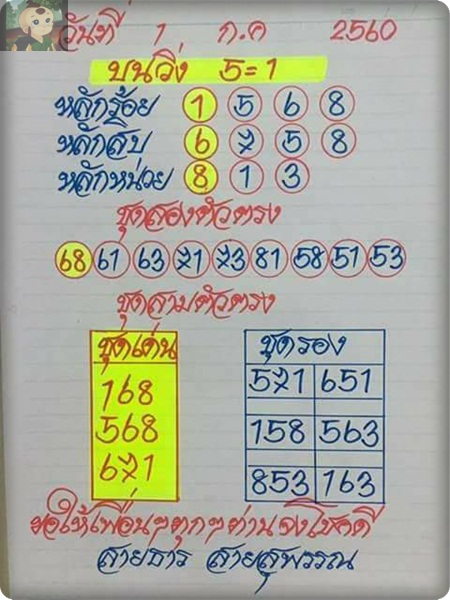 วันที่ 1 ก.ค 2560
บนวิ่ง 5=1
หลักร้อย 1 5 6 8
หลักสิบ 6 7 5 8
หลักหน่วย 8 1 3
ชุดสองตัวตรง
68 61 63 71 73 81 58 51 53
ชุดสามตัวตรง
ชุดเด่น ชุดรอง
168 571 651
568 158 563
671 853 163
ขอให้เพื่อนๆทุกๆท่านจงโชคดี
สายธาร สายสุพรรณ